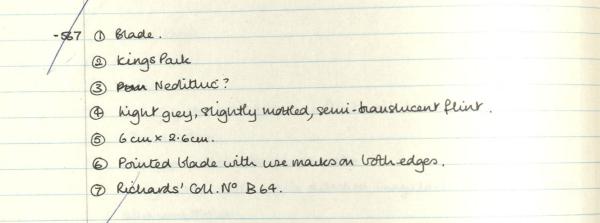 -567 ① Blade.
② Kings Park
③ Neolithic?
④ Light grey, slightly mottled, semi-translucent flint.
⑤ 6cm x 2.6cm.
⑥ Pointed blade with use marks on both edges.
⑦ Richards' Coll. Nº B64.